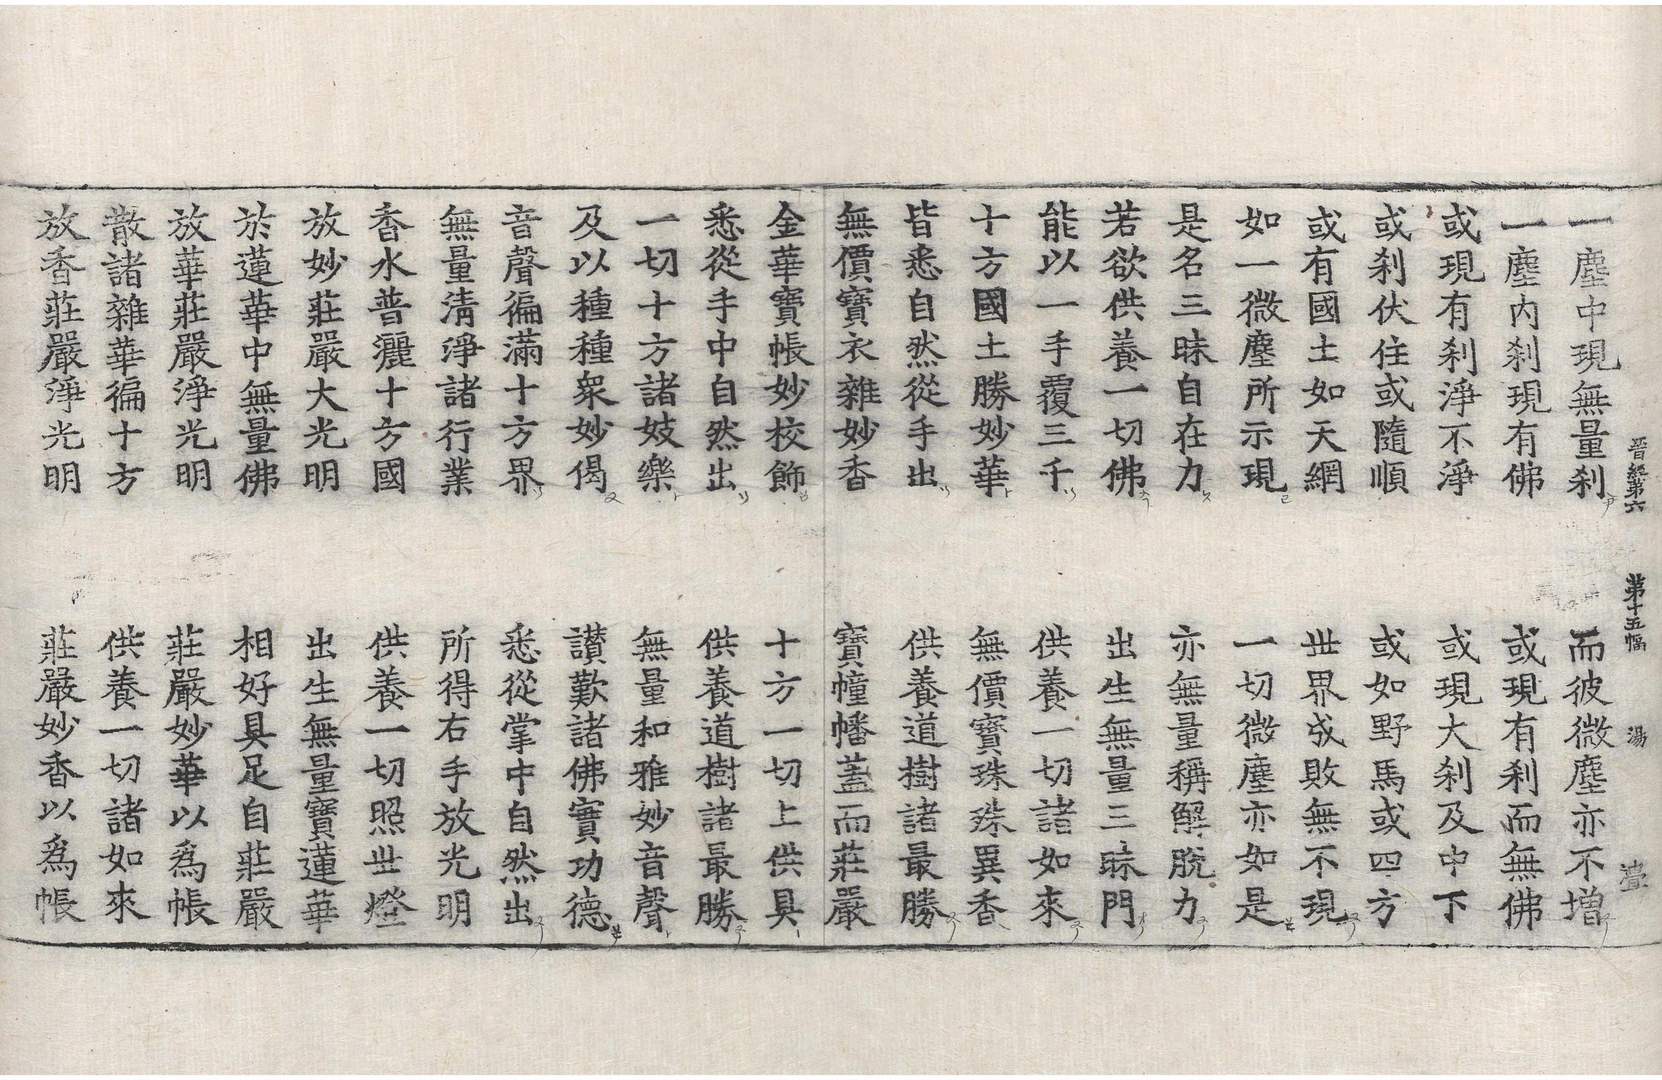 晋經第六 第十五幅 湯
一塵中現無量刹 而彼微塵亦不增
一塵内刹現有佛 或現有刹而無佛
或現有刹淨不淨 或現大刹及中下
或刹伏住或隨順 或如野馬或四方
或有國土如天網 世界成敗無不現
如一微塵所示現 一切微塵亦如是
是名三昧自在力 亦無量稱解脫力
若欲供養一切佛 出生無量三昧門
能以一手覆三千 供養一切諸如來
十方國土勝妙華 無價寶珠殊異香
皆悉自然從手出 供養道樹諸最勝
無價寶衣雜妙香 寶幢幡蓋而莊嚴
金華寶帳妙校飾 十方一切上供具
悉從手中自然出 供養道樹諸最勝
一切十方諸妓樂 無量和雅妙音聲
及以種種衆妙偈 讃歎諸佛實功德
音聲徧滿十方界 悉從掌中自然出
無量清淨諸行業 所得右手放光明
香水普灑十方國 供養一切照世燈
放妙莊嚴大光明 出生無量寶蓮華
於蓮華中無量佛 相好具足自莊嚴
放華莊嚴淨光明 莊嚴妙華以爲帳
散諸雜華徧十方 供養一切諸如來
放香莊嚴淨光明 莊嚴妙香以爲帳